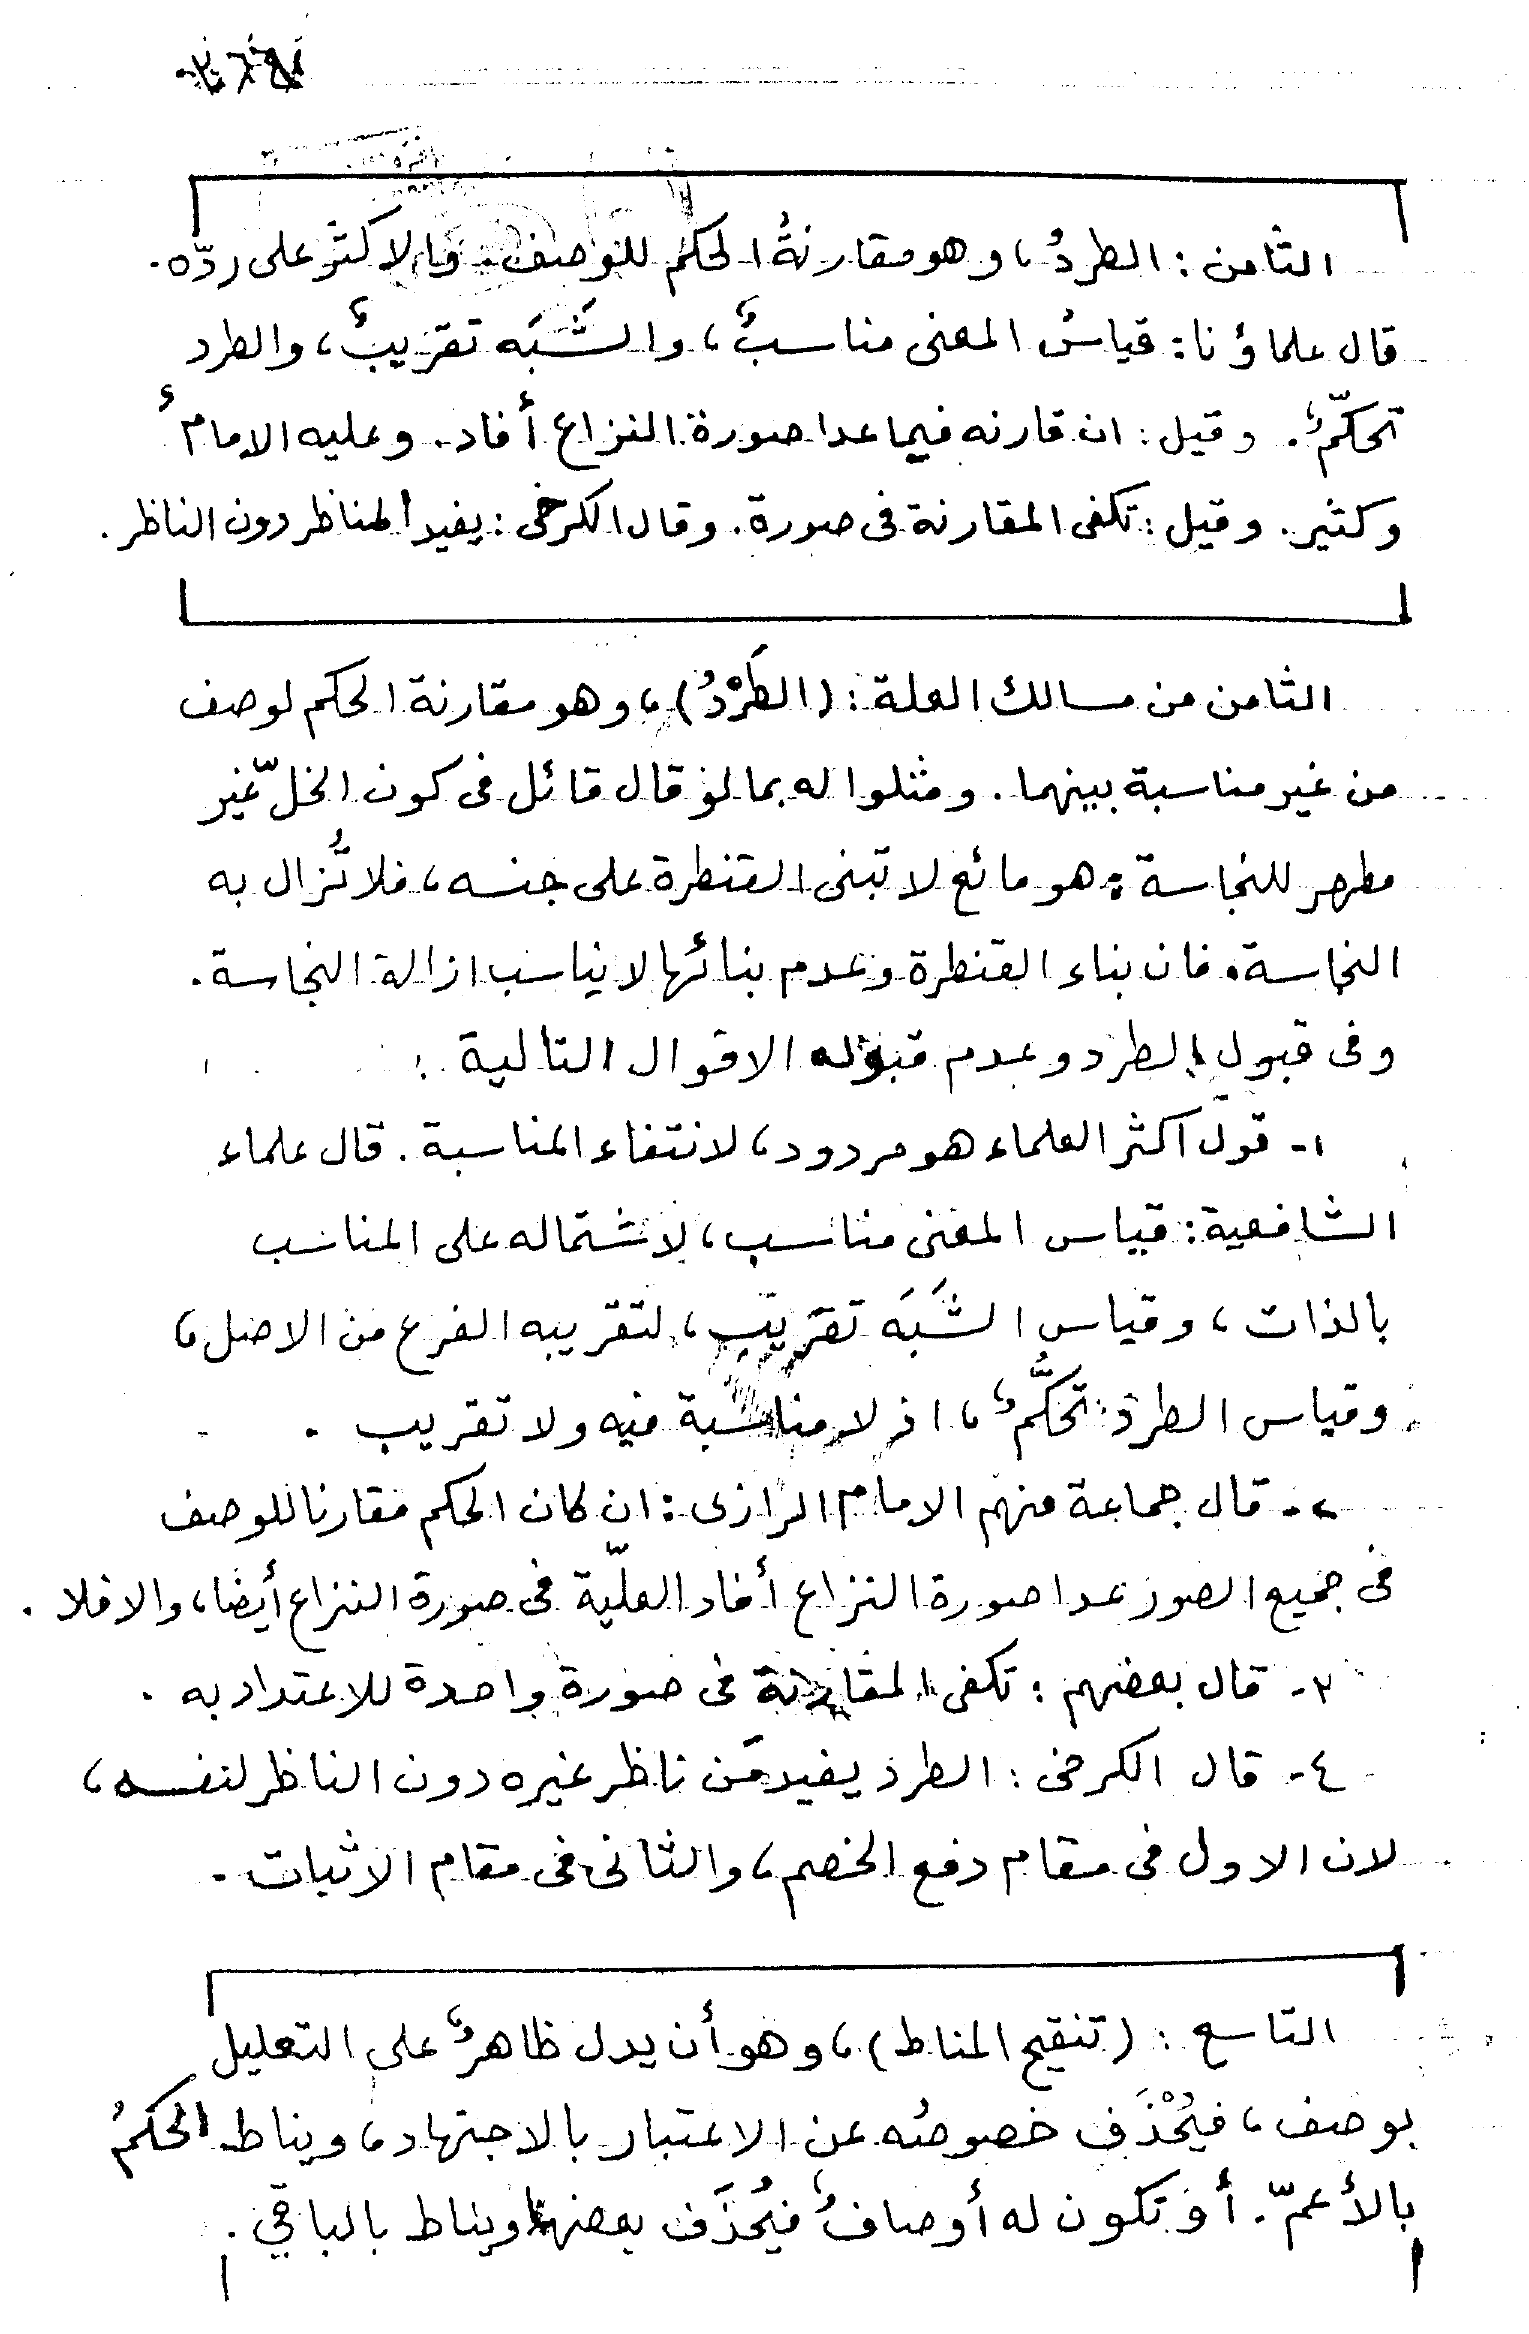 الثامن : الطردُ ، وهو مقارنةُ الحكم للوصف . والاكثر على ردّه .
قال علماؤنا : قياسُ المعنى مناسبٌ ، والشَبَه تقريبٌ ، والطرد
تحكّمٌ . وقيل : ان قارنه فيما عدا صورة النزاع أفاد . وعليه الامامُ
وكثير . وقيل : تكفى المقارنة فى صورة . وقال الكرخى : يفيد المناظر دون الناظر .
الثامن من مسالك العلة : (الطَرْدُ) ، وهو مقارنة الحكم لوصف
من غير مناسبة بينهما . ومثلوا له بما لو قال قائل فى كون الخلّ غير
مطهر للنجاسة : هو مائع لا تبنى القنطرة على جنسه ، فلا تُزال به
النجاسة . فان بناء القنطرة وعدم بنائها لا يناسب ازالة النجاسة .
وفى قبول الطرد وعدم قبوله الاقوال التالية :
١- قول اكثر العلماء هو مردود ، لانتفاء المناسبة . قال علماء
الشافعية : قياس المعنى مناسب ، لاشتماله على المناسب
بالذات ، وقياس الشَبَه تقريب ، لتقريبه الفرع من الاصل ،
وقياس الطرد تحكُّمٌ ، اذ لا مناسبة فيه ولا تقريب .
٢- قال جماعة منهم الامام الرازى : ان كان الحكم مقارنا للوصف
فى جميع الصور عدا صورة النزاع أفاد العلّية فى صورة النزاع أيضا ، والا فلا .
٣- قال بعضهم : تكفى المقارنة فى صورة واحدة للاعتداد به .
٤- قال الكرخى : الطرد يفيد مَن ناظر غيره دون الناظر لنفسه ،
لان الاول فى مقام دفع الخصم ، والثانى فى مقام الاثبات .
التاسع : (تنقيح المناط) ، وهو أن يدل ظاهرٌ على التعليل
بوصف ، فيُحْذَف خصوصُه عن الاعتبار بالاجتهاد ، ويناط الحكمُ
بالأعمّ . أو تكون له أوصافٌ فيُحذَف بعضها ويناط بالباقي .